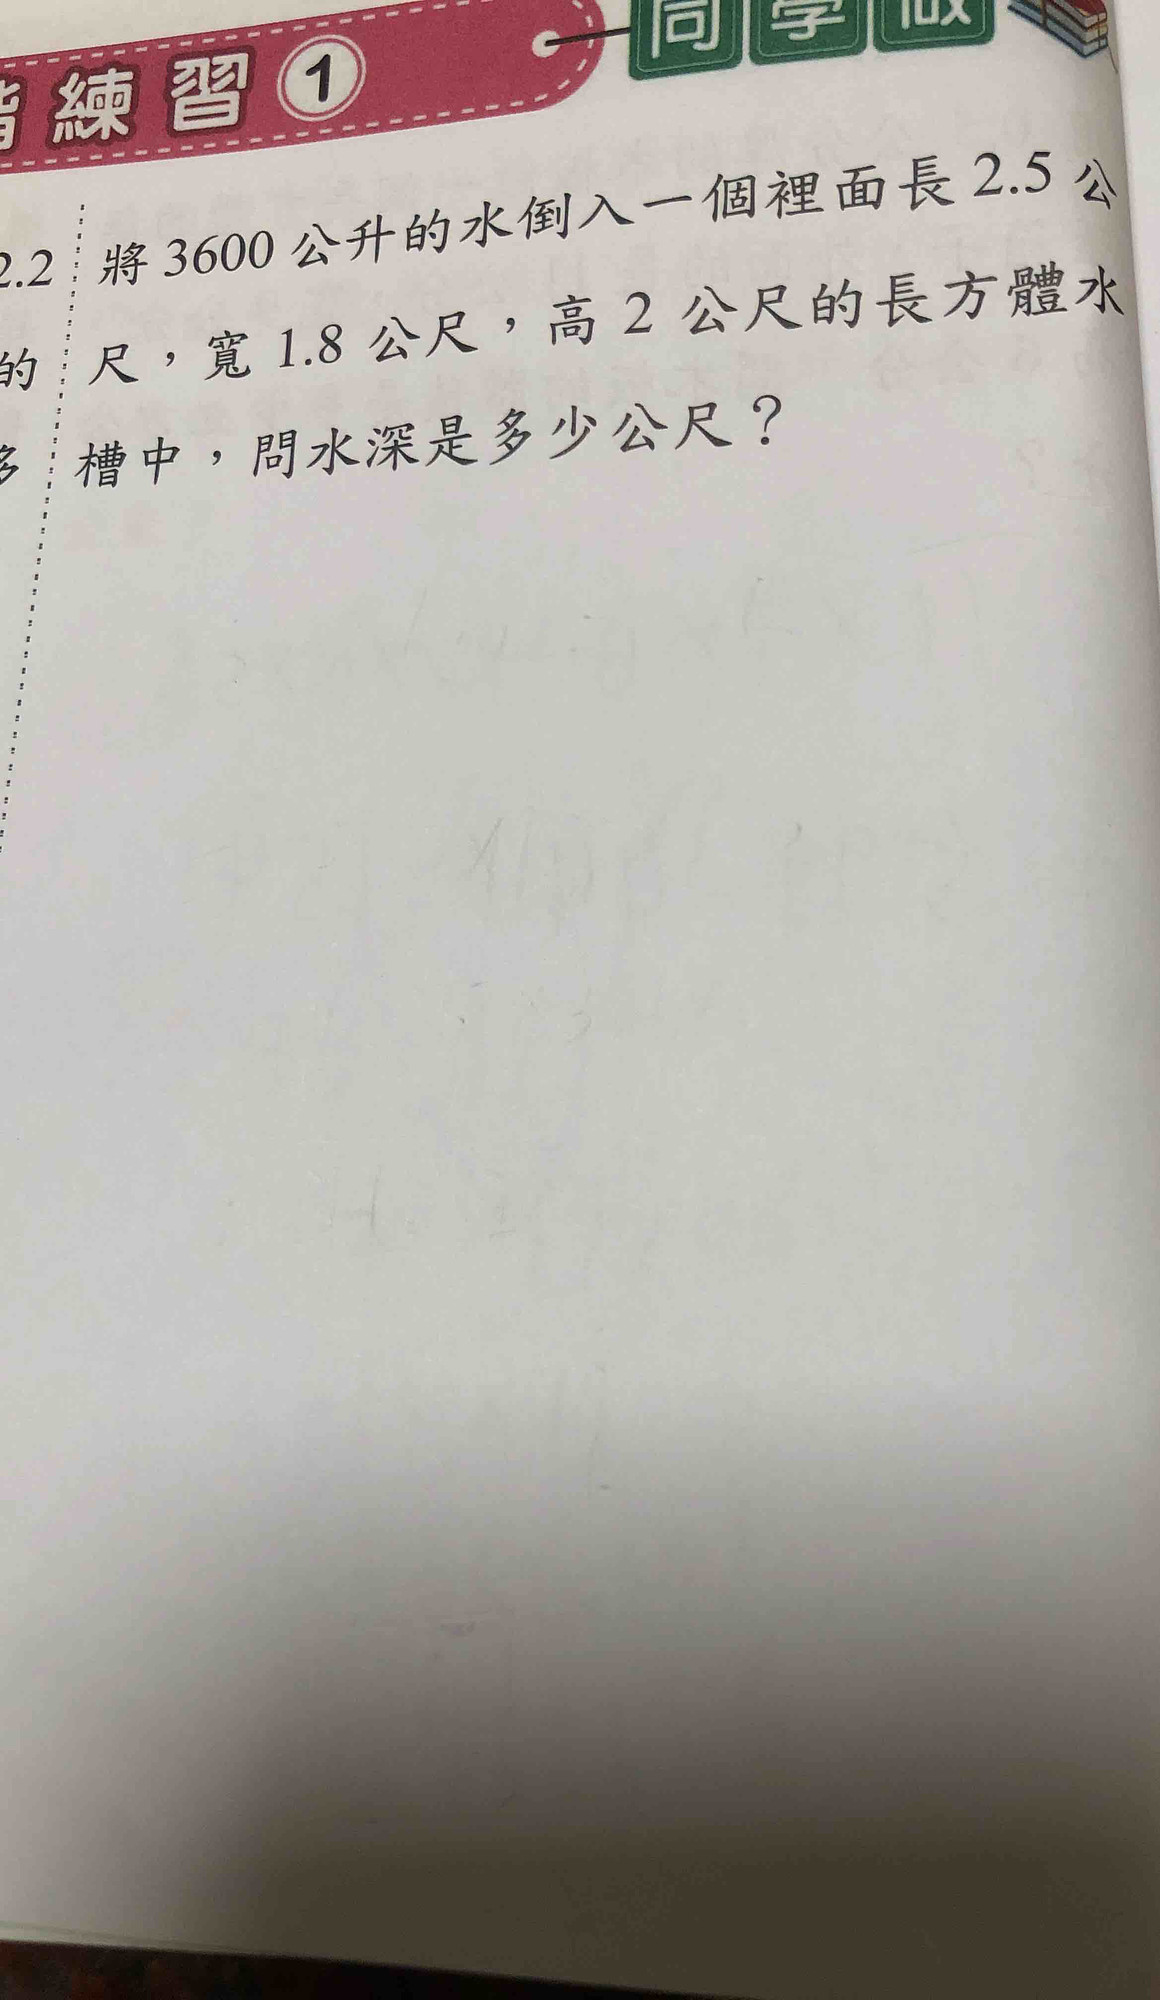 練習 1
同學做
2.2
的
將 3600 公升的水倒入一個裡面長 2.5 公
尺，寬 1.8 公尺，高 2 公尺的長方體水
槽中，問水深是多少公尺？